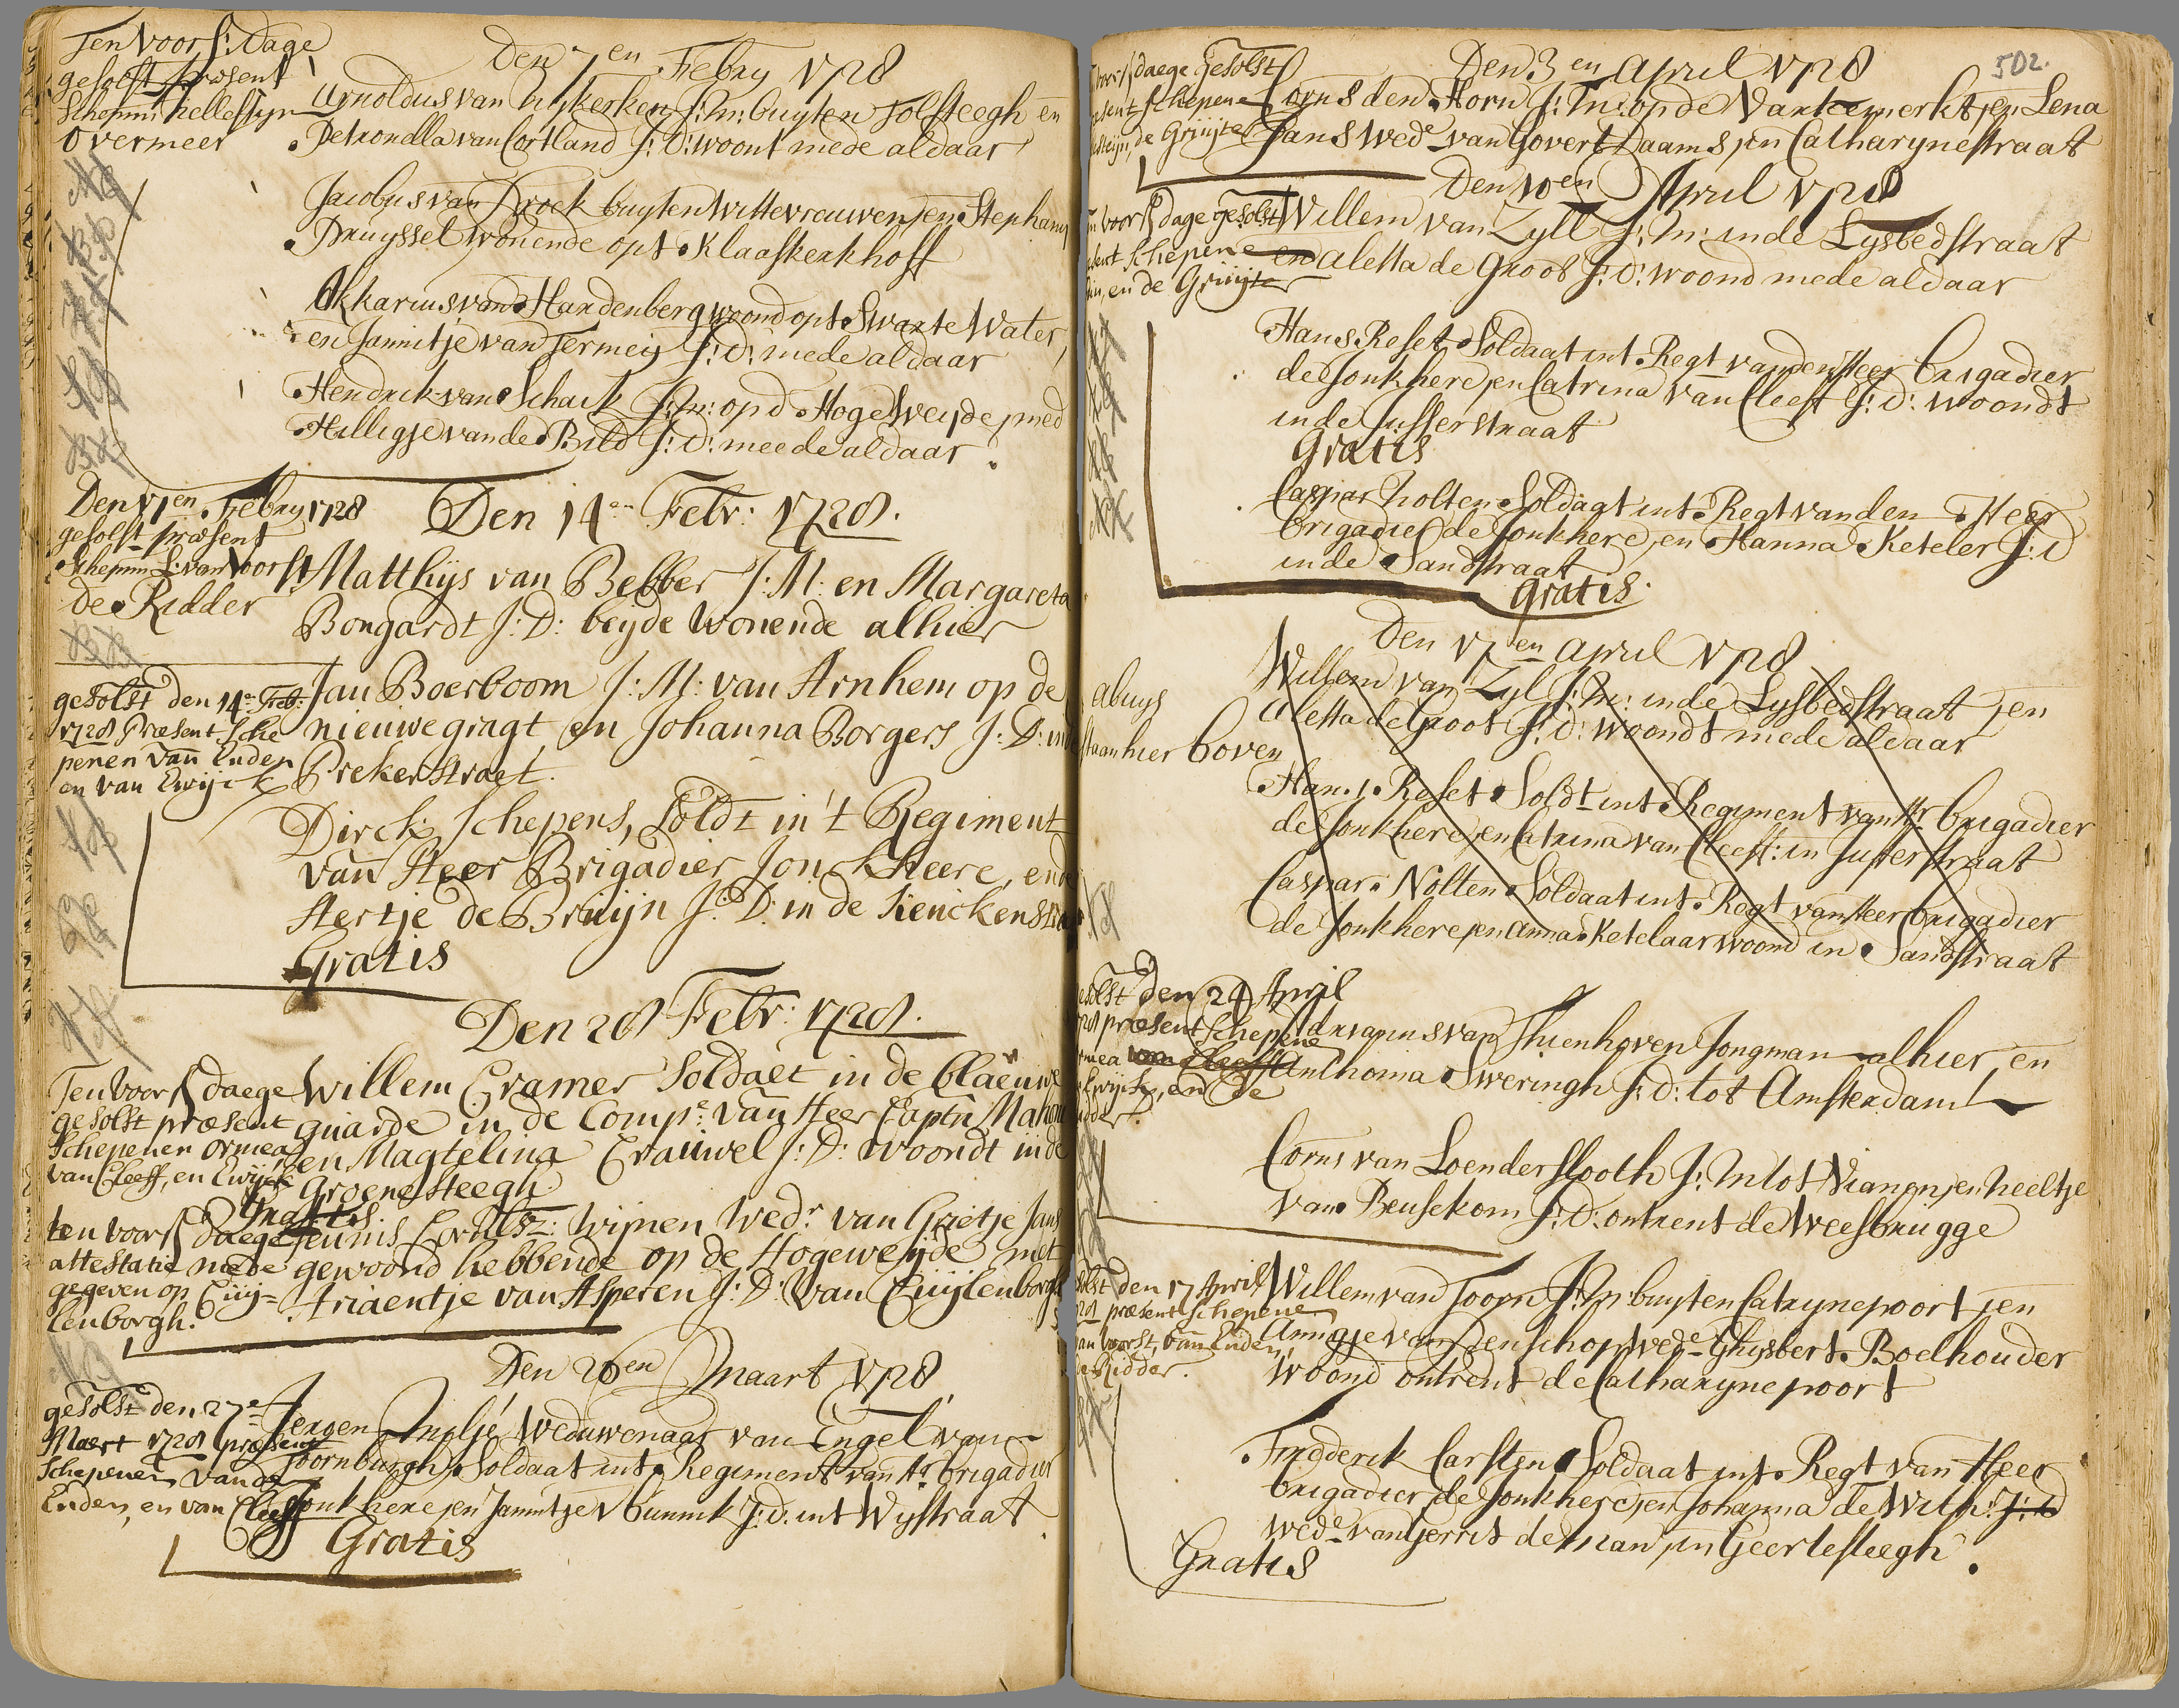 Ten Voors: Dage
gesolst præsent
Schepnn: hellesteyn
Overmeer
Den 7en Febry 1728
Arnoldus van Nykerken J: M: buyten Tolsteegh en
Petronella van Cortland J: D: woont mede aldaar
Jacobus van Broek buyten Wittevrouwen, en Stephany
Pruyssel wonende opt Klaaskerkhoff
Akkarius van Hardenberg woond opt Swarte Water,
en Jannitje van Termeij J: D: mede aldaar
Hendrik van Schaik J: M: op d Hoge Weyde, med
Hilligje vande Bild J: D: meede aldaar
Den 11en Febry 1728
gesolst præsent
Schepnn L: van Voorst
de Ridder
Den 14en Febr: 1728.
Matthijs van Bebber J: M: en Margareta
Bongardt J: D: beyde wonende alhier
gesolst den 14e Feb:
1728 Præsent Sche
penen van Enden
en van Ewijck
Jan Boerboom J: M: van Arnhem op de
nieuwegragt en Johanna Borgers J: D: inde
Prekerstraet.
Dirck Schepens, Soldt in 't Regiment
van Heer Brigadier Jonckheere, ende
Hertje de Bruijn J: D: in de
Gratis
Den 28 Febr: 1728.
Ten Voors daege
gesolst præsent
Schepenen ormea
van Cleeff, en Ewijck
Willem Cramer Soldaet in de blaeuwe
guarde in de Compe: van Heer Captn
en Magtelina Crauwel J: D: woondt inde
Groenesteegh
Gratis
ten voors daege
attestatie mede
gegeven op Cuij-
lenborgh.
Teunis Cornelisz: Wijnen Wedr van Grietje Jans
gewoond hebbende op de Hogeweijde met
Ariaentje van Asperen J: D: van Cuijlenborgh
Den 26en Maart 1728
gesolst den 27e
Maert 1728 præsent
Schepenen vande
Enden, en van Cleeff
Jergen Weduwenaar van Engel van
Toornburgh, Soldaat int Regiment van Hr brigadier
Jonkhere, en Jannitje V bunnik J: D: int Wystraat
Gratis
502.
voors daege gesolst
præsent schepene
esteijn, de Gruijter
Den 3en April 1728
Corns den Horn J: M: op de Varkemerkt, en Lena
Jans Wede van Govert Daams, in Catharynestraat
Den 10en April 1728
en voors dage gesolst
esent schepene
ein, en de Gruijter
Willem van Zyll J: M: inde Lysbedstraat
en Aletta de Groot J: D: woond mede aldaar
Hans Reset Soldaat int Regt vanden Heer brigadier
de Jonkhere, en Catrina van Cleeff J: D: woondt
inde Jufferstraat
Gratis
Caspar Nolten Soldaat int Regt vanden Heer
brigadier de Jonkhere, en Hanna Keteler J: D
inde Sandstraat
Gratis.
Den 17en April 1728
abuys
staan hier boven
Willem van Zyl J: M: inde Lysbedstraat, en
Aletta de Groot J: D: woondt mede aldaar
Hans Reset Soldt int Regiment van Hr brigadier
de Jonkhere, en Catrina van Cleeff: in Jufferstraat
Caspar Nolten Soldaat int Regt van Heer brigadier
de Jonkhere, en Anna Ketelaar woond in Sandstraat
esolst den 24 April
728 præsent schepene
rmea van Cleeff
Ewijck, en de
idder.
Adrianus van Thienhoven Jongman alhier, en
Anthonia Sweringh J: D: tot Amsterdam
Corns van Loenderslooth J: M tot Vianen, en neeltje
van Beusekom J: D: ontrent de Weesbrugge
olst den 17 April
728 præsent Schepene
van Voorst, van Enden,
de Ridder.
Willem van Toorn J: M: buyten Catrynepoort, en
Annigje van den schop Wede Ghysbert Boelhouder
Woond ontrent de Catharynepoort
Fredderik Carsten Soldaat int Regt van Heer
brigadier, de Jonkhere, en Johanna de With: J: D
Wede van Gerrit de Man, in Geertesteegh
Gratis